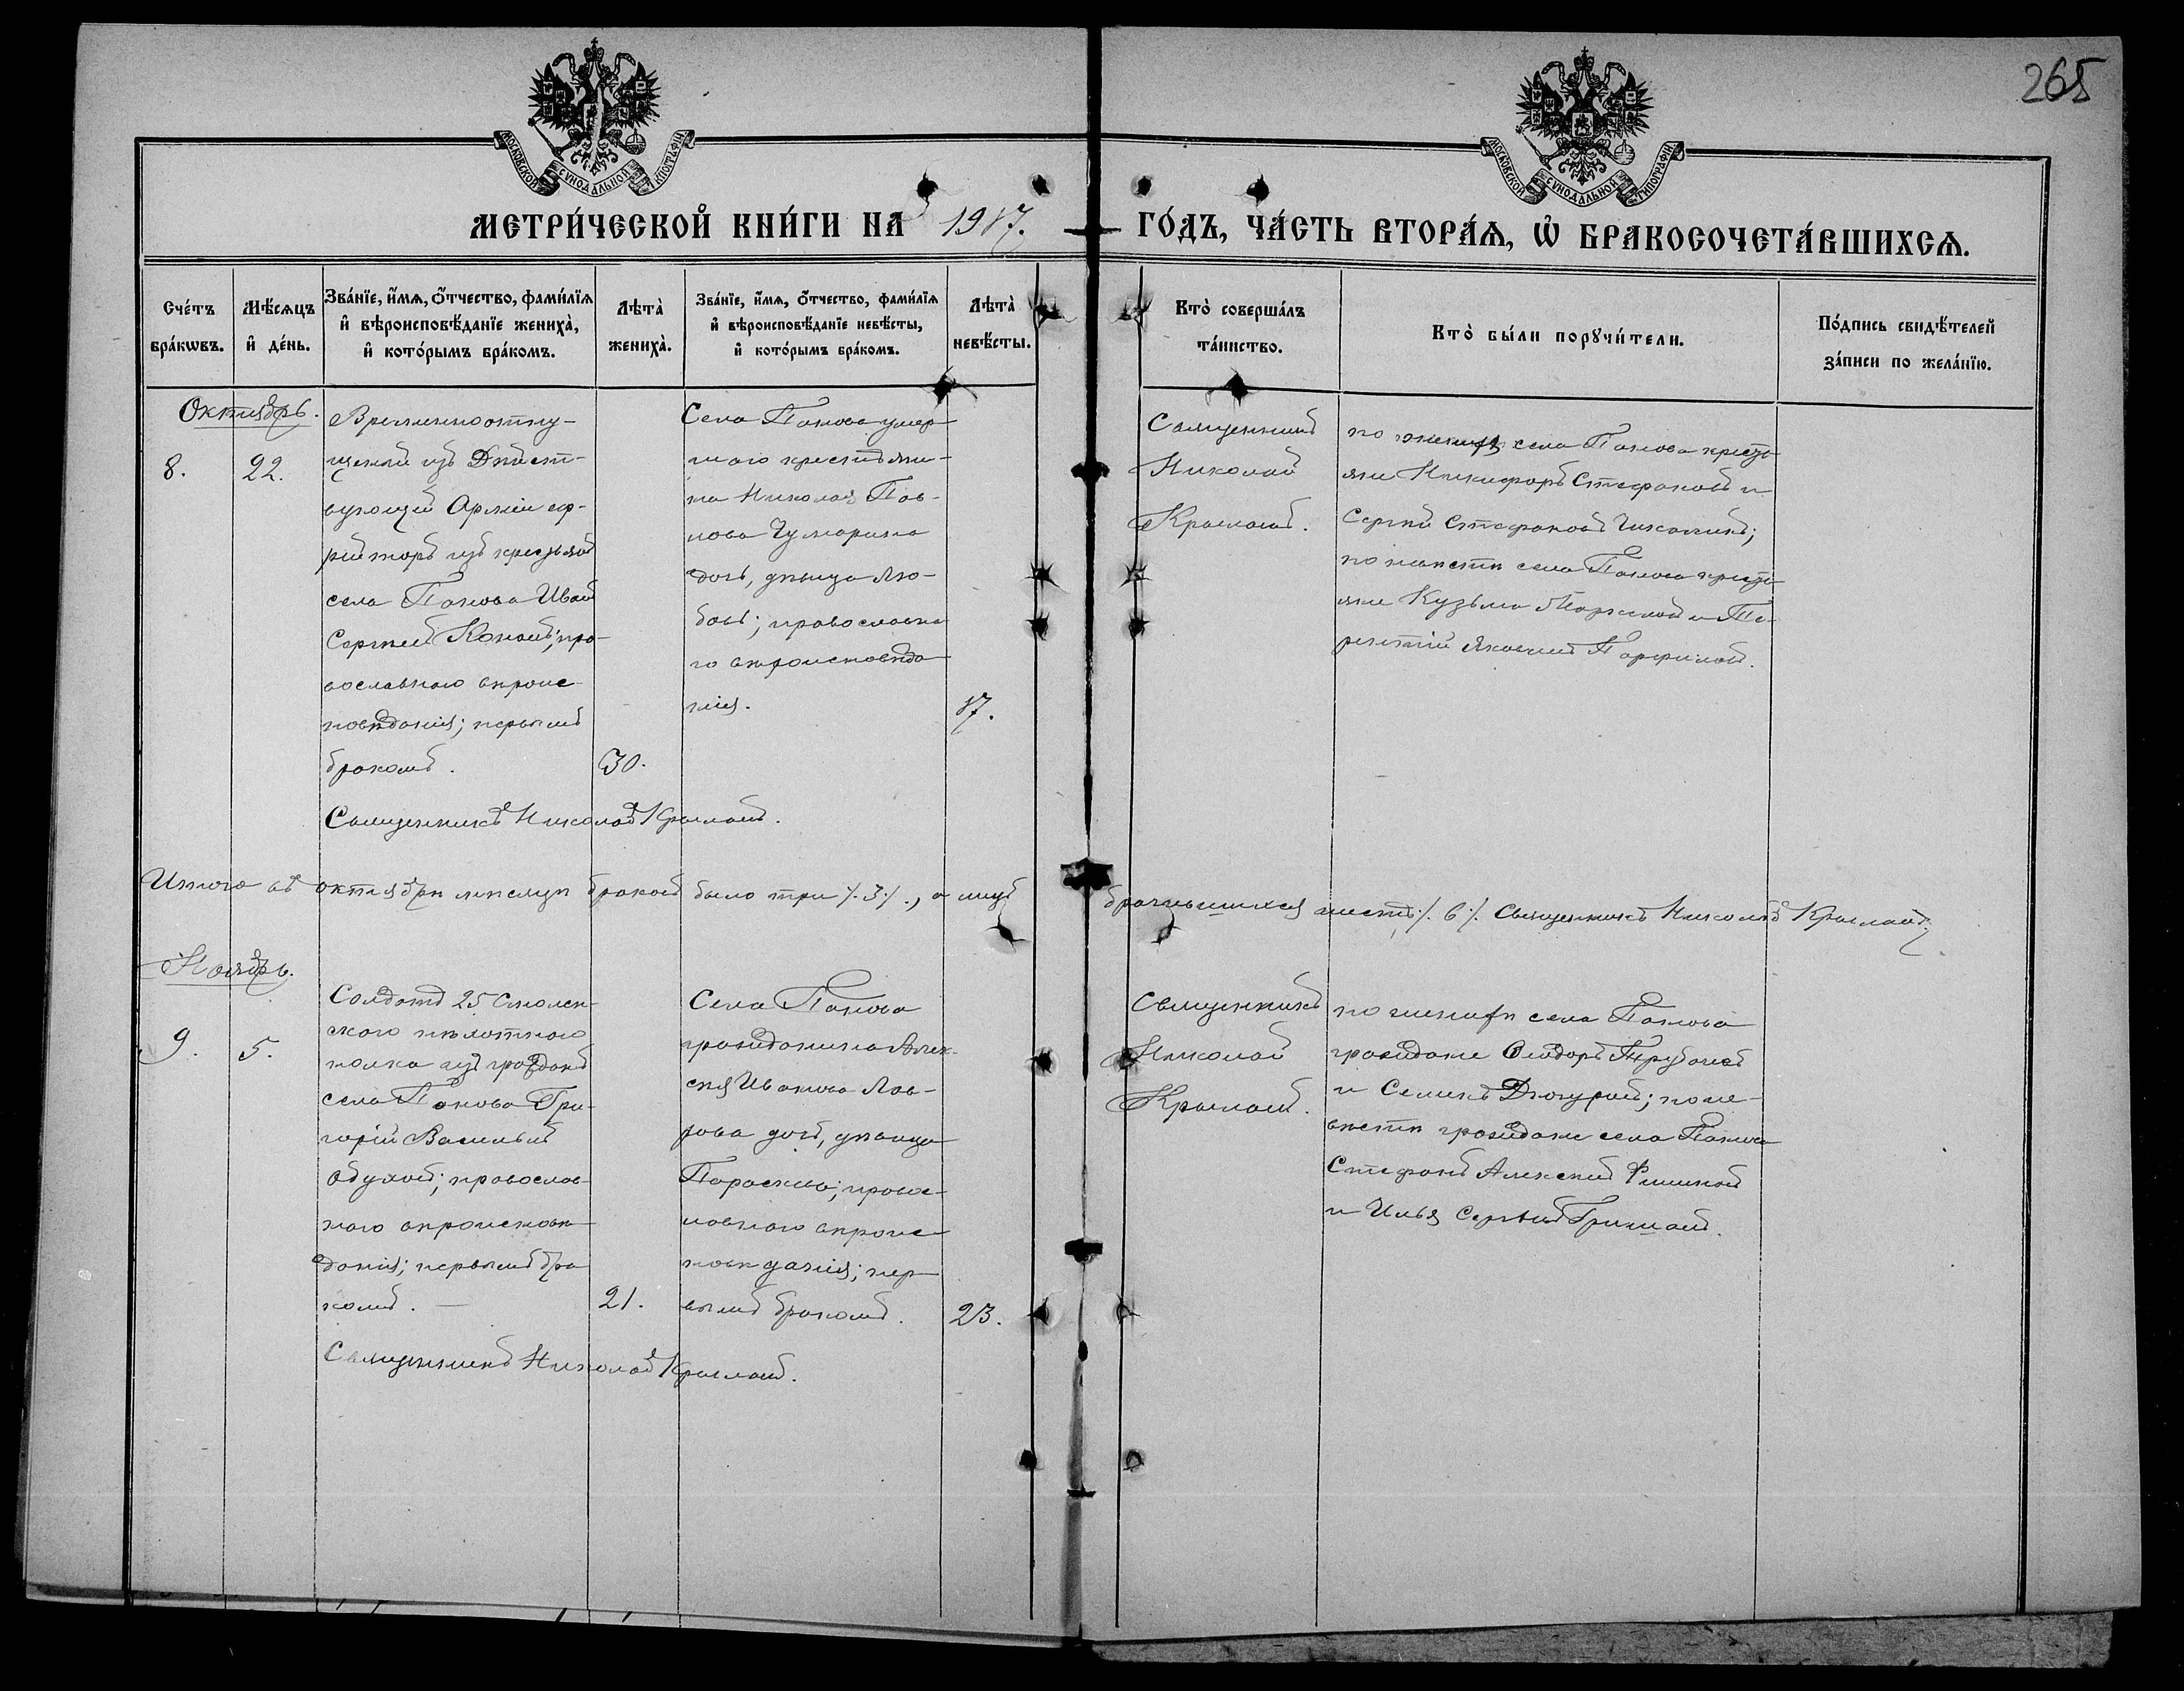 265
МОСКОВСКОЙ СѴНОДАЛЬНОЙ ТИПОГРАФІИ
МОСКОВСКОЙ СѴНОДАЛЬНОЙ ТИПОГРАФІИ
МЕТРИ́ЧЕСКОЙ КНИ́ГИ НА 1917. ГО́ДЪ, ЧА́СТЬ ВТОРА́Ѧ, Ѡ҆ БРАКОСОЧЕТА́ВШИХСѦ.
Сче́тъ
бра́кѡвъ.
Мѣ́сѧцъ
и҆ де́нь.
Зва́нїе, и҆́мѧ, ѻ҆́тчество, фами́лїѧ
и҆ вѣроисповѣ́данїе жениха̀,
и҆ кото́рымъ бра́комъ.
Лѣта̀
жениха̀.
Зва́нїе, и҆́мѧ, ѻ҆́тчество, фами́лїѧ
и҆ вѣроисповѣ́данїе невѣ́сты,
и҆ кото́рымъ бра́комъ.
Лѣта̀
невѣ́сты.
Кто̀ соверша́лъ
та́инство.
Кто̀ бы́ли порꙋчи́тели.
По́дпись свидѣ́телей
за́писи по жела́нїю.
Октябрь.
8.
22.
Временноотпу-
щеный изъ Дѣйст-
вующей Арміи еф-
рейторъ изъ крестьянъ
села Панова Иванъ
Сергѣевъ Конновъ; пра-
вославнаго вѣроис-
повѣданія; первымъ
бракомъ.
30.
Села Панова умер-
шаго крестьяни-
на Николая Пав-
лова Чумарина
дочь, дѣвица Лю-
бовь; православна-
го вѣроисповѣда-
нія.
17.
Священникъ
Николай
Крыловъ.
по женихѣ села Панова кресть-
яне Никифоръ Стефановъ и
Сергѣй Стефановъ
по невѣстѣ села Панова кресть-
яне Кузьма и Те-
рентій Яковлевъ
Священникъ Николай Крыловъ.
Итого въ октябрѣ мѣсяцѣ браковъ было три /.3/., а лицъ брачившихся шесть /.6/. Священникъ Николай Крыловъ.
Ноябрь.
9.
5.
Солдатъ 25 Смолен-
скаго пѣхотнаго
полка изъ гражданъ
села Панова Гри-
горій Васильевъ
Обуховъ; православ-
наго вѣроисповѣ-
данія; первымъ бра-
комъ.
21.
Села Панова
гражданина Алек-
сѣя Иванова Лав-
рова дочь, дѣвица
Параскева; правос-
лавнаго вѣроис-
повѣданія; пер-
вымъ бракомъ.
23.
Священникъ
Николай
Крыловъ.
по женихѣ села Панова
граждане Ѳеодоръ
и Семенъ по не-
вѣстѣ граждане села Панова
Стефанъ Алексѣевъ
и Илья Сергѣевъ Гришаевъ.
Священникъ Николай Крыловъ.